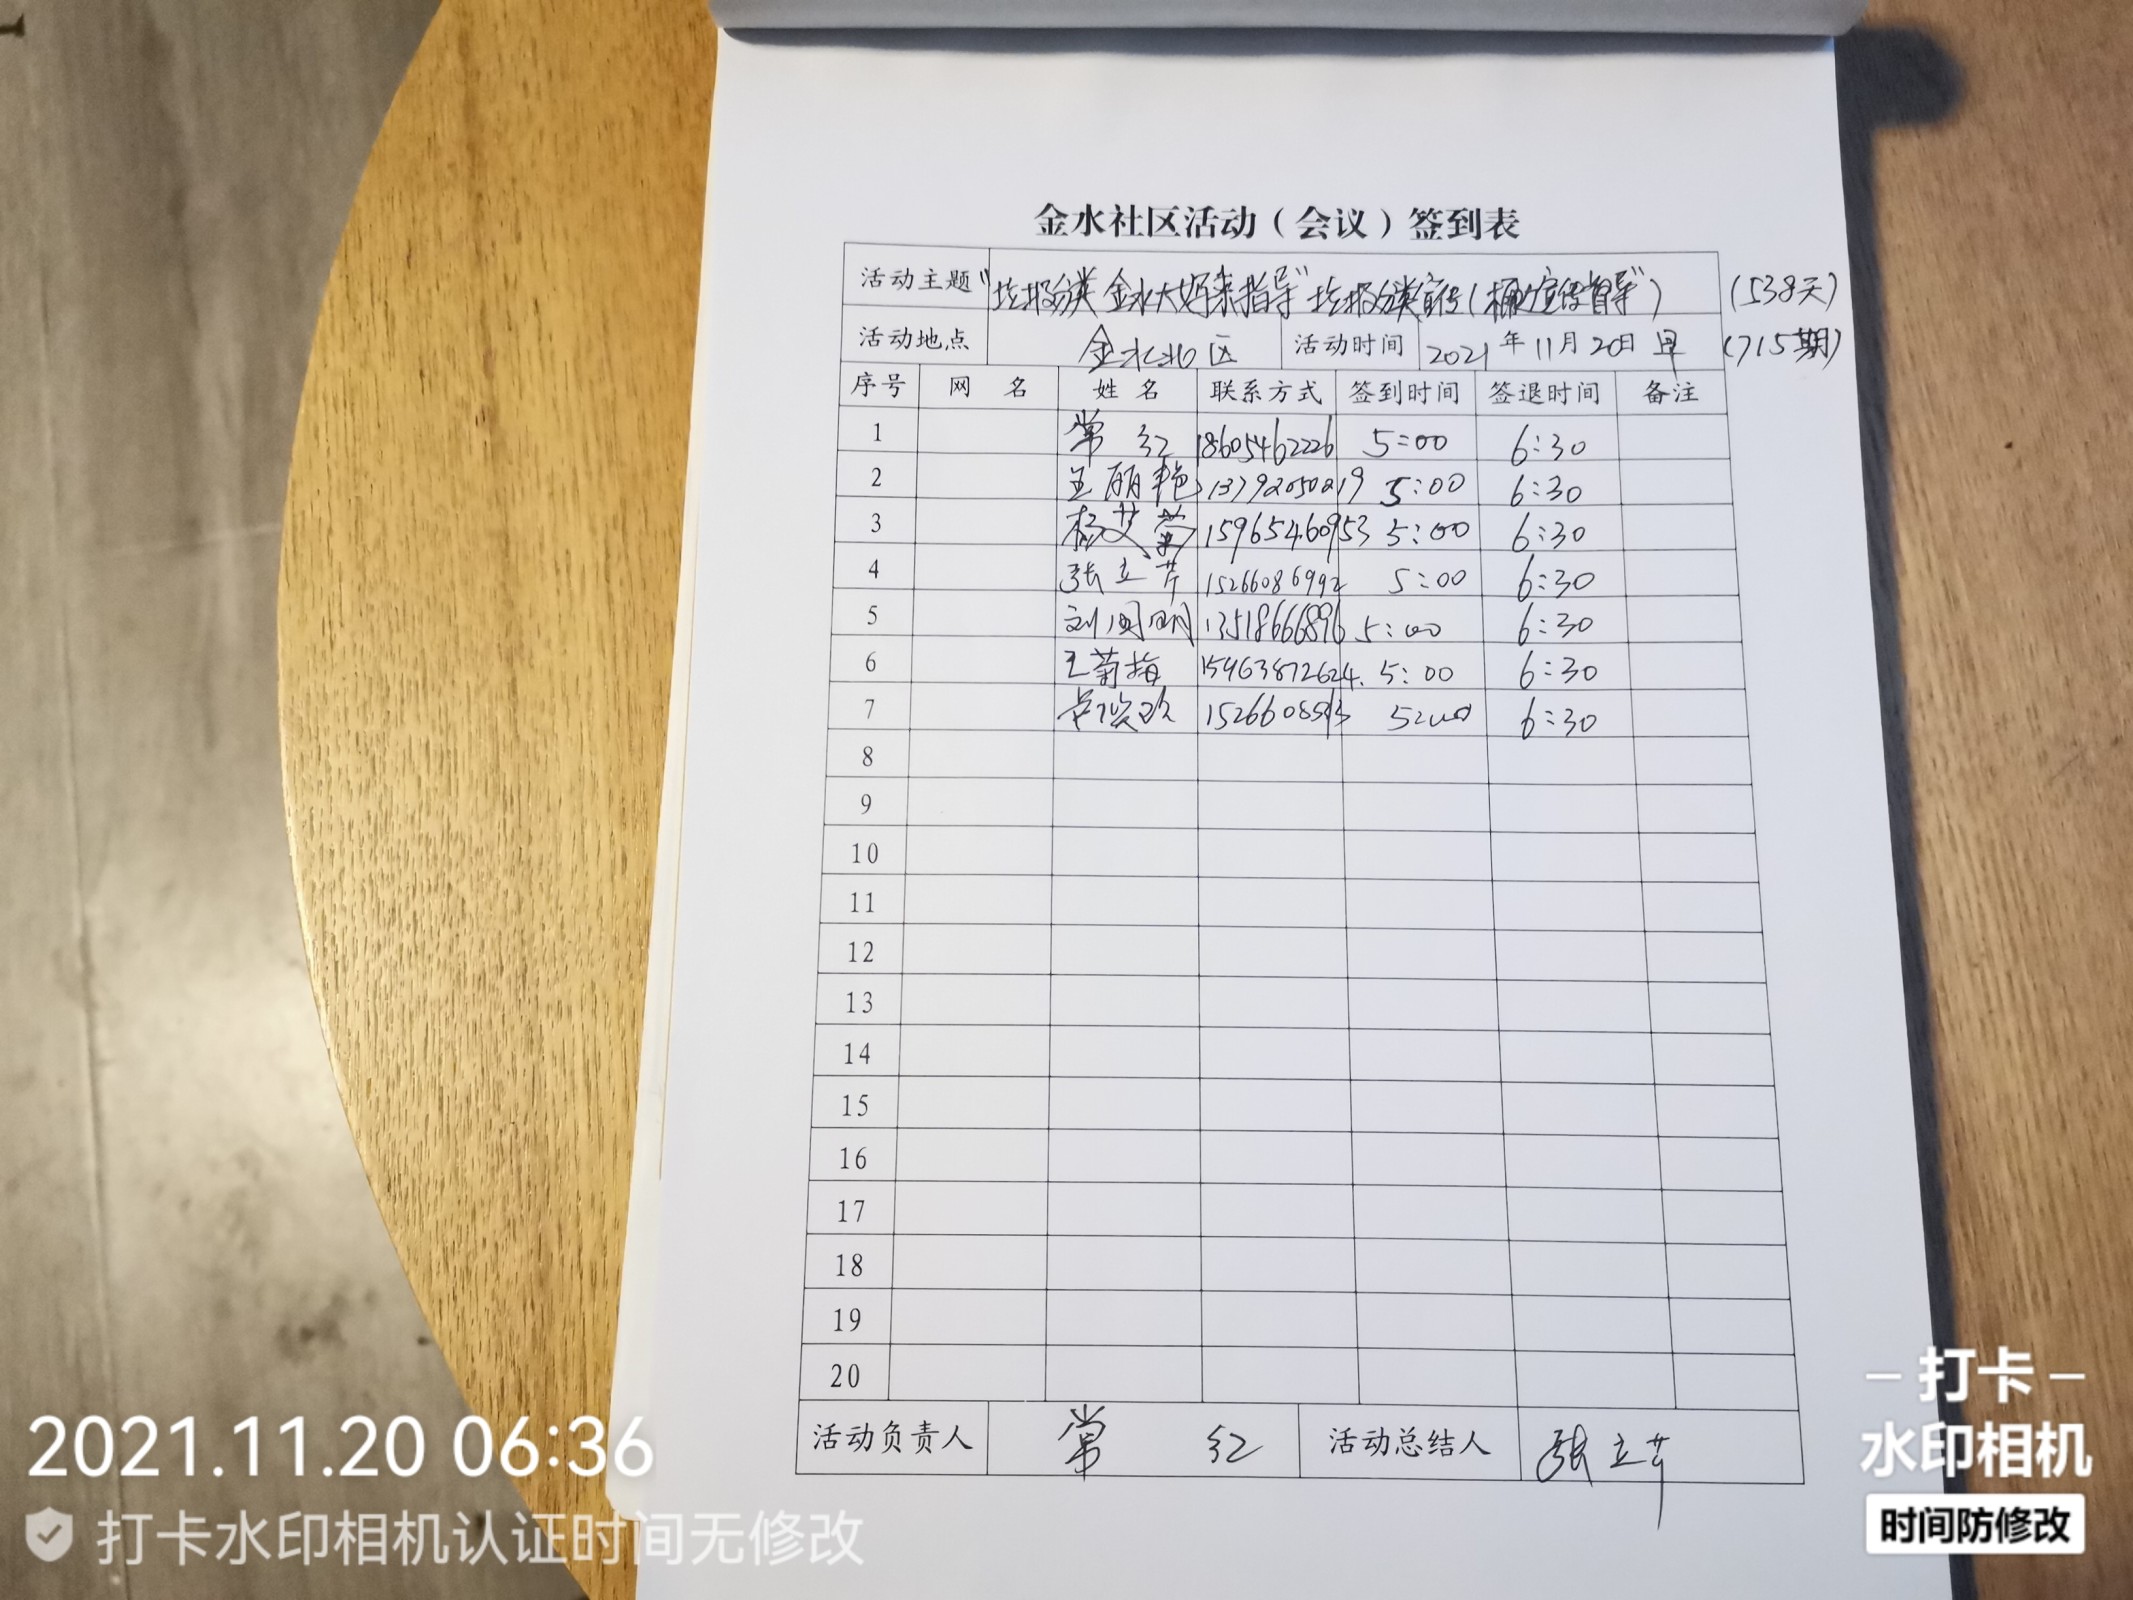 金水社区活动（会议）签到表
活动主题 "垃圾分类 金水大妈来指导" 垃圾分类宣传(桶边宣传督导") (538天)
活动地点 金水北区 活动时间 2021年11月20日 早 (715期)
序号 网 名 姓 名 联系方式 签到时间 签退时间 备注
1 常 红 18605462226 5:00 6:30
2 王丽艳 13792050219 5:00 6:30
3 杨艾 15965460953 5:00 6:30
4 张立芹 15266086992 5:00 6:30
5 刘国明 13518666896 5:00 6:30
6 王菊梅 15963872624. 5:00 6:30
7 5:00 6:30
8
9
10
11
12
13
14
15
16
17
18
19
20
活动负责人 常 红 活动总结人 张立芹
2021.11.20 06:36
打卡水印相机认证时间无修改
打卡
水印相机
时间防修改